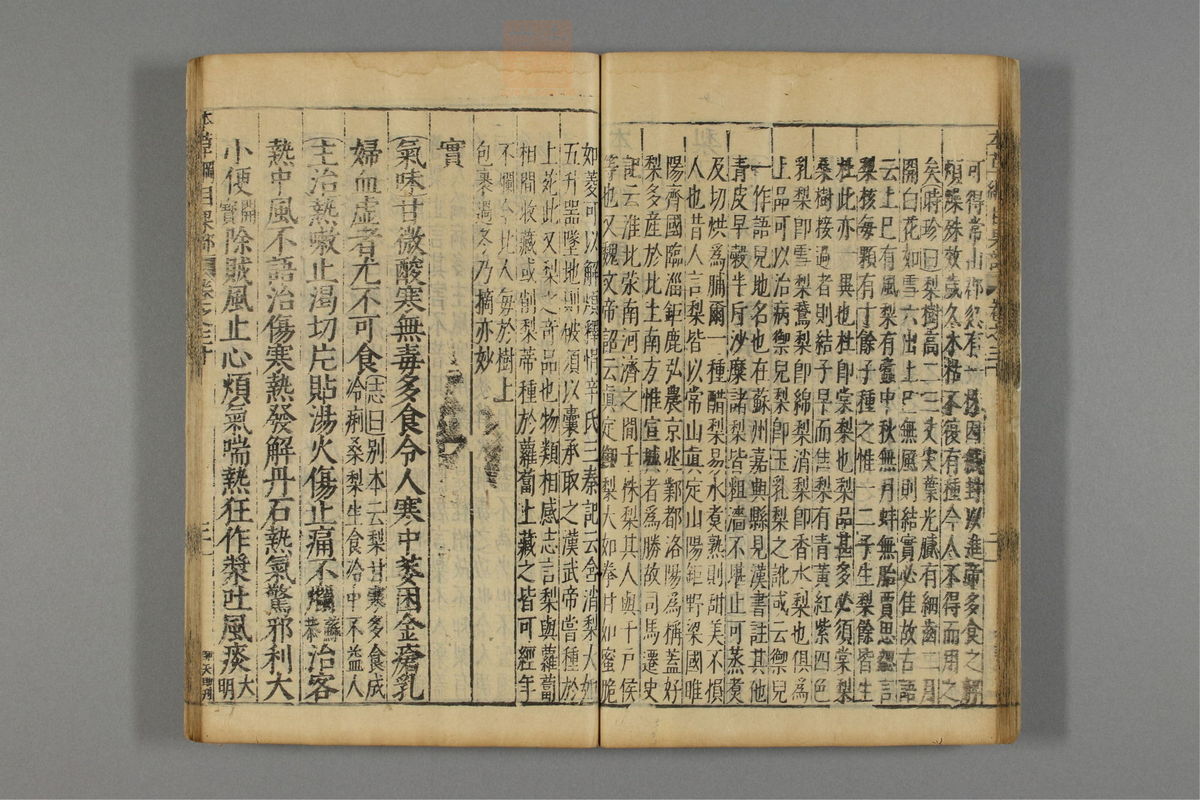 可得常山郡忽有一株因封以進帝多食之解
煩燥殊效歲久木枯不復有種今人不得而用之
矣時珍曰梨樹高二三丈尖葉光膩有細齒二月
開白花如雪六出上巳無風則結實必佳故古語
云上巳有風梨有蠹中秋無月蚌無胎賈思勰言
梨核每顆有十餘子種之惟一二子生梨餘皆生
杜此亦一異也杜即棠梨也梨品甚多必須棠梨
桑樹接過者則結子早而佳梨有青黃紅紫四色
乳梨即雪梨鵞梨即綿梨消梨即香水梨也俱為
上品可以治病禦兒梨即玉乳梨之訛或云禦兒
一作語兒地名也在蘇州嘉興縣見漢書註其他
青皮早穀半斤沙糜諸梨皆粗濇不堪止可蒸煮
及切烘為脯爾一種醋梨易水煮熟則甜美不損
人也昔人言梨皆以常山真定山陽鉅野梁國睢
陽齊國臨淄鉅鹿弘農京兆鄴都洛陽為稱蓋好
梨多産於北土南方惟宣城者為勝故司馬遷史
記云淮北滎南河濟之間千株梨其人與千戶侯
等也又魏文帝詔云真定御梨大如拳甘如蜜脆
如菱可以解煩釋悁辛氏三秦記云含消梨大如
五升器墜地則破須以囊承取之漢武帝嘗種於
上苑此又梨之奇品也物類相感志言梨與蘿蔔
相間收藏或削梨蒂種於蘿蔔上藏之皆可經年
不爛今北人每於樹上
包裹過冬乃摘亦妙
實
氣味甘微酸寒無毒多食令人寒中萎困金瘡乳
婦血虛者尤不可食志曰别本云梨甘寒多食成
冷痢桑梨生食冷中不益人
主治熱嗽止渴切片貼湯火傷止痛不爛蘇恭治客
熱中風不語治傷寒熱發解丹石熱氣驚邪利大
小便開寶除賊風止心煩氣喘熱狂作漿吐風痰大明